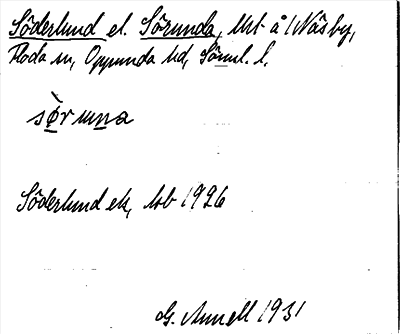 Söderlund el. Sörunda, lht å Näsby,
Floda sn, Oppunda hd, Söml. l.
sø̀runa
Söderlund ek, hsb 1926
G. Annell 1931